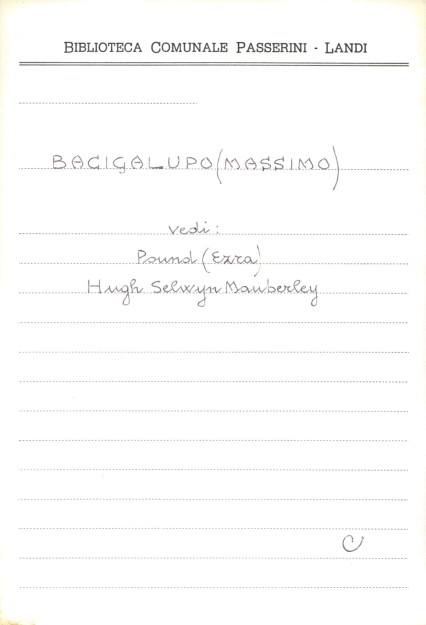 BIBLIOTECA COMUNALE PASSERINI - LANDI
BACIGALUPO (MASSIMO)
vedi:
Pound (Ezra)
Hugh Selwyn Mauberley
C